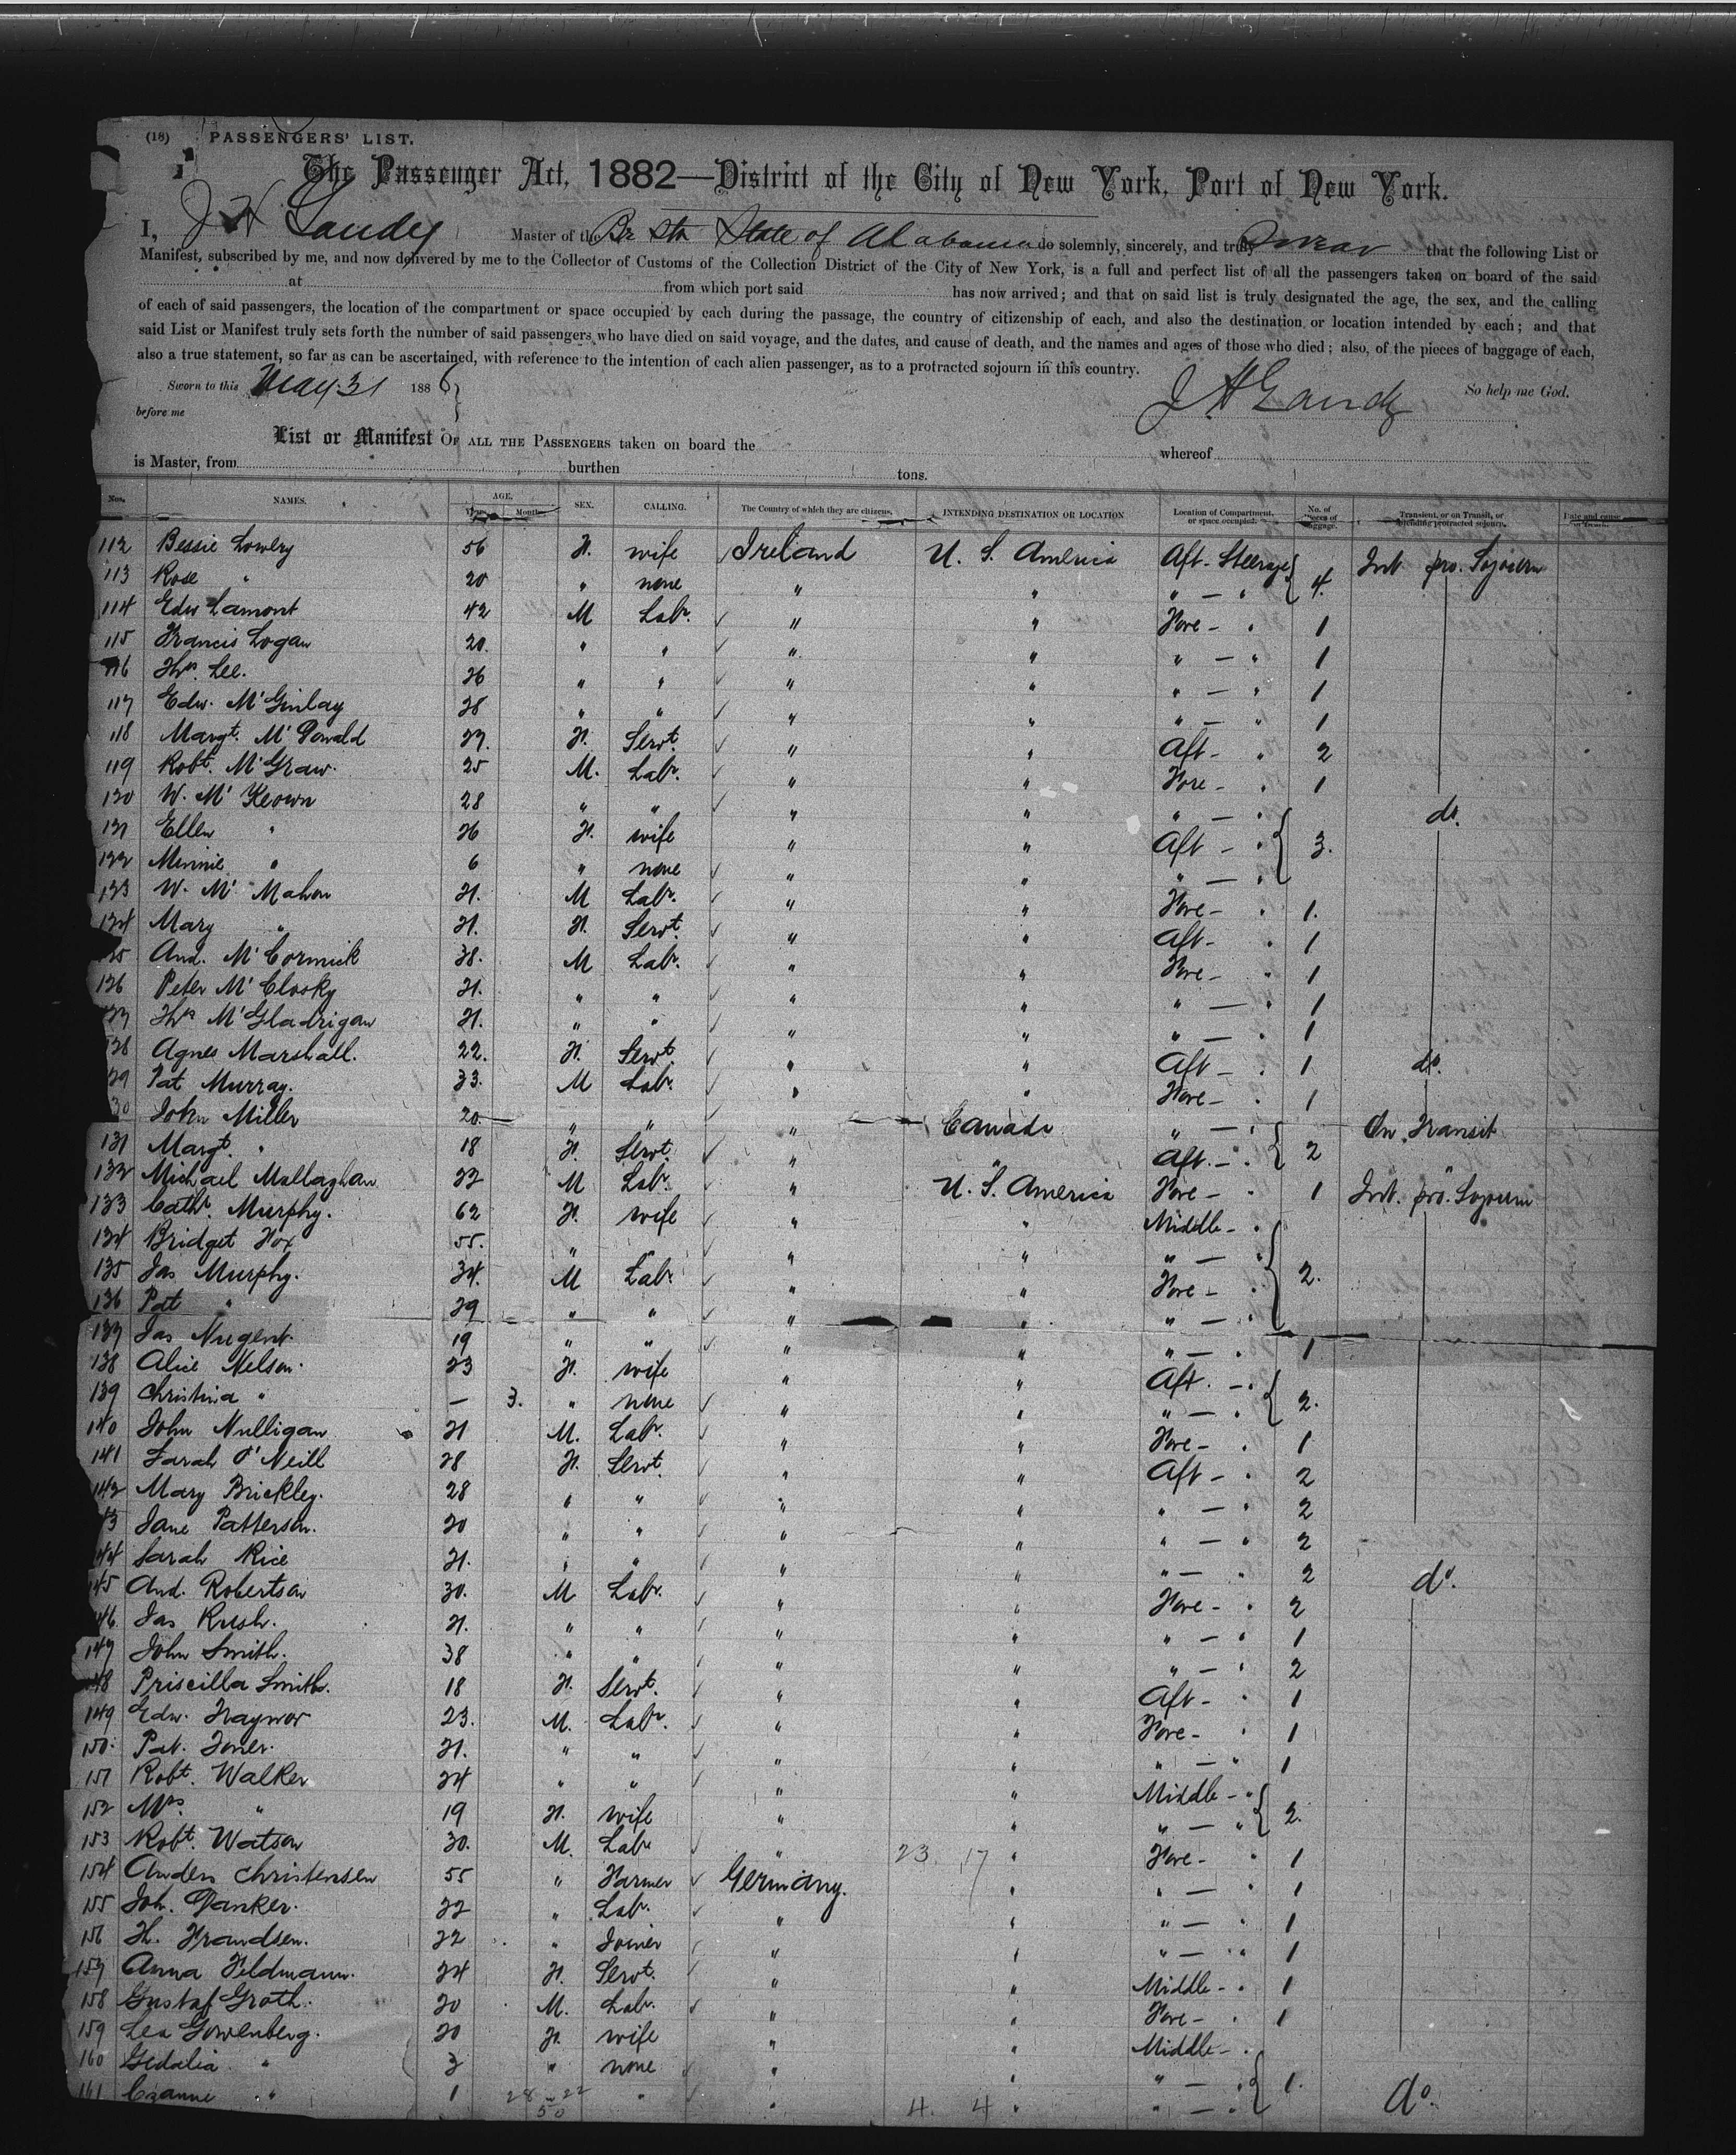 (18) PASSENGERS' LIST.
The Passenger Act, 1882—District of the City of New York, Port of New York.
I, J H Gandy Master of the Br Str State of Alabama do solemnly, sincerely, and truly Swear that the following List or
Manifest, subscribed by me, and now delivered by me to the Collector of Customs of the Collection District of the City of New York, is a full and perfect list of all the passengers taken on board of the said
at from which port said has now arrived; and that on said list is truly designated the age, the sex, and the calling
of each of said passengers, the location of the compartment or space occupied by each during the passage, the country of citizenship of each, and also the destination or location intended by each; and that
said List or Manifest truly sets forth the number of said passengers who have died on said voyage, and the dates, and cause of death, and the names and ages of those who died; also, of the pieces of baggage of each,
also a true statement, so far as can be ascertained, with reference to the intention of each alien passenger, as to a protracted sojourn in this country.
Sworn to this May 31 1886 J H Gandy So help me God.
before me
List or Manifest OF ALL THE PASSENGERS taken on board the whereof
is Master, from burthen tons.
Nos. NAMES. AGE. Years. Months. SEX. CALLING. The Country of which they are citizens. INTENDING DESTINATION OR LOCATION Location of Compartment or space occupied. No. of Pieces of Baggage. Transient, or on Transit, or intending protracted sojourn. Date and cause of Death.
112 Bessie Lowery 56 F. wife Ireland U. S. America Aft. Steerage 4. Int pro. Sojourn
113 Rose " 20 " none " " " — "
114 Edw Lamont 42 M Labr. " " Fore - " 1
115 Francis Logan 20. " " " " " — " 1
116 Ths. Lee. 26 " " " " " — " 1
117 Edw. McGinlay 28 " " " " " — " 1
118 Margt. McDonald 27. F. Servt. " " Aft - " 2
119 Robt. McGraw. 25 M. Labr. " " Fore - " 1
120 W. McKeown 28 " " " " " — " 3. do.
121 Ellen " 26 F. wife " " Aft - "
122 Minnie " 6 " none " " " — "
123 W. McMahon 21. M Labr. " " Fore - " 1.
124 Mary " 21. F. Servt. " " Aft - " 1
125 And. McCormick 38. M Labr. " " Fore - " 1
126 Peter McClosky 21. " " " " " — " 1
127 Ths McGladrigan 21. " " " " " — " 1
128 Agnes Marshall. 22. F. Servt. " " Aft - " 1 do.
129 Pat Murray. 33. M Labr. " " Fore - " 1
130 John Miller 20 " " " Canada " — " 2 On Transit
131 Margt. " 18 F. Servt. " " Aft. - " "
132 Michael Mallaghan 22 M Labr. " U. S. America Fore - " 1 Int. pro. Sojourn
133 Cathr. Murphy. 62 F. wife " " Middle - " 2.
134 Bridget Fox 55. " " " " " — "
135 Jas Murphy. 34. M Labr. " " Fore - "
136 Pat " 29 " " " " " — "
137 Jas Nugent. 19 " " " " " — " 1
138 Alice Nelson. 23 F. wife " " Aft. - " 2.
139 Christina " — 3. " none " " " — "
140 John Nulligan 21 M. Labr. " " Fore - " 1
141 Sarah O'Neill 28 F. Servt. " " Aft - " 2
142 Mary Brickley. 28 " " " " " — " 2
143 Jane Patterson. 20 " " " " " — " 2
144 Sarah Rice 21. " " " " " — " 2 do.
145 And. Robertson 30. M Labr. " " Fore - " 2
146 Jas Rush. 21. " " " " " — " 1
147 John Smith. 38 " " " " " — " 2
148 Priscilla Smith. 18 F. Servt. " " Aft - " 1
149 Edw. Traynor 23. M. Labr. " " Fore - " 1
150 Pat. Toner. 21. " " " " " — " 1
151 Robt. Walker 24 " " " " Middle - " 2.
152 Mrs. " 19 F. wife " " " — "
153 Robt. Watson 30. M. Labr " 23. 17 " Fore - " 1
154 Anders Christensen 55 " Farmer Germany. " " — " 1
155 Joh. Danker. 22 " Labr. " " " — " 1
156 H. Frandsen. 22 " Joiner " " " — " 1
157 Anna Feldmann. 24 F. Servt. " " Middle - " 1
158 Gustaf Groth. 20 M. Labr. " " Fore - " 1
159 Lea Gowenberg. 20 F. wife " " Middle - " 1.
160 Gedalia " 3 " none " " " — "
161 " 1 28 - 22 50 " " 4. 4 " " — " do.